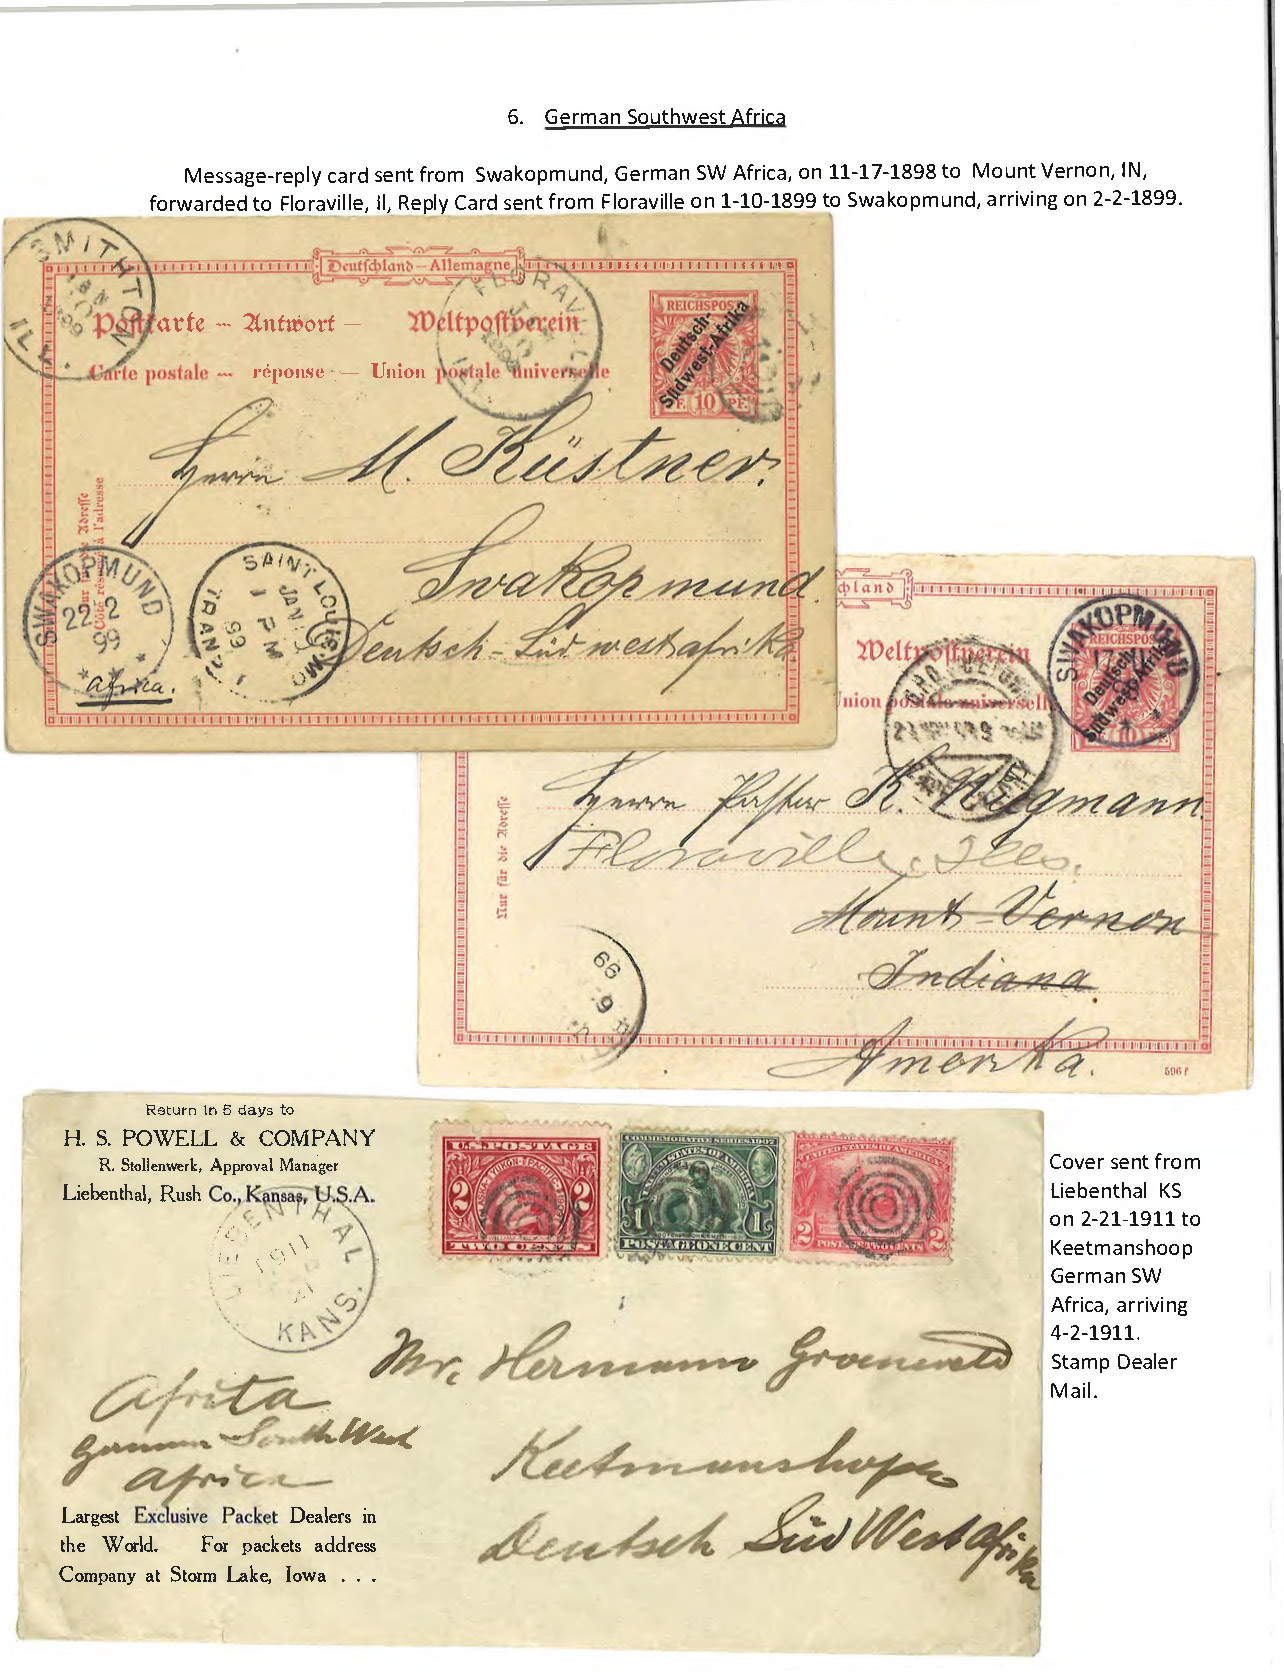 6. German Southwest Africa
Message-reply card sent from Swakopmund, German SW Africa, on 11-17-1898 to Mount Vernon, IN,
forwarded to Floraville, Il, Reply Card sent from Floraville on 1-10-1899 to Swakopmund, arriving on 2-2-1899.
SMITHTON
JAN
10
ILL.
Deutschland – Allemagne
FLORAVILLE
ILL
Postkarte — Antwort — Weltpostverein
Carte postale — réponse — Union postale universelle
REICHSPOST
Deutsch-
Südwest-Afrika
PF. 10 PF.
Herrn M. Küstner.
Swakopmund.
Deutsch-Südwestafrika.
SWAKOPMUND
22 2
99
Africa.
SAINT LOUIS, MO
JAN
1 PM
99
TRANSIT
Weltpostverein
REICHSPOST
Deutsch-
Südwest-Afrika
10
SWAKOPMUND
Union postale universelle
Nur für die Adresse
Herrn Pastor K.
Floraville, Ills.
Mount Vernon
Indiana
Amerika.
99
596 f
Return in 5 days to
H. S. POWELL & COMPANY
R. Stollenwerk, Approval Manager
Liebenthal, Rush Co., Kansas, U.S.A.
LIEBENTHAL
1911
21
KANS.
U.S. POSTAGE
ALASKA-YUKON-PACIFIC
1909
2 2
TWO CENTS
COMMEMORATIVE SERIES 1907
UNITED STATES OF AMERICA
1 1
POSTAGE ONE CENT
UNITED STATES OF AMERICA
2 2
POSTAGE TWO CENTS
Mr. Hermann
Keetmanshope
Deutsch Süd West Afrika
Afrika
German South West
Africa
Largest Exclusive Packet Dealers in
the World. For packets address
Company at Storm Lake, Iowa . . .
Cover sent from
Liebenthal KS
on 2-21-1911 to
Keetmanshoop
German SW
Africa, arriving
4-2-1911.
Stamp Dealer
Mail.